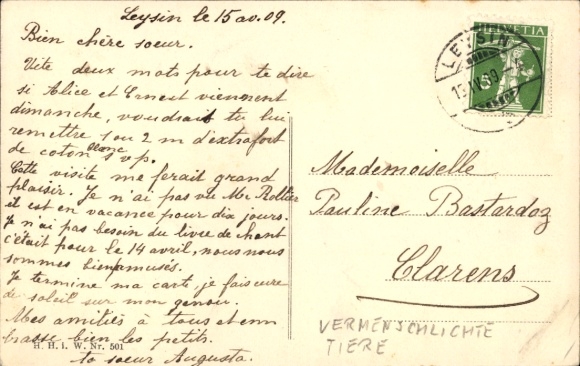 Leysin le 15 av. 09.
Bien chère soeur.
Vite deux mots pour te dire
si Alice et Ernest viennent
dimanche, voudrais tu lui
remettre 1 ou 2 m d'extrafort
de coton blanc s v p.
Cette visite me ferait grand
plaisir. Je n'ai pas vu Mr Rollier
il est en vacance pour dix jours.
Je n'ai pas besoin du livre de chant
c'était pour le 14 avril, nous nous
sommes bien amusés.
Je termine ma carte, je fais cure
de soleil sur mon genou.
Mes amitiés à tous et em
brasse bien les petits.
ta soeur Augusta.
H. H. i. W. Nr. 501
HELVETIA
LEYSIN
Mademoiselle
Pauline Bastardoz
Clarens
VERMENSCHLICHTE
TIERE